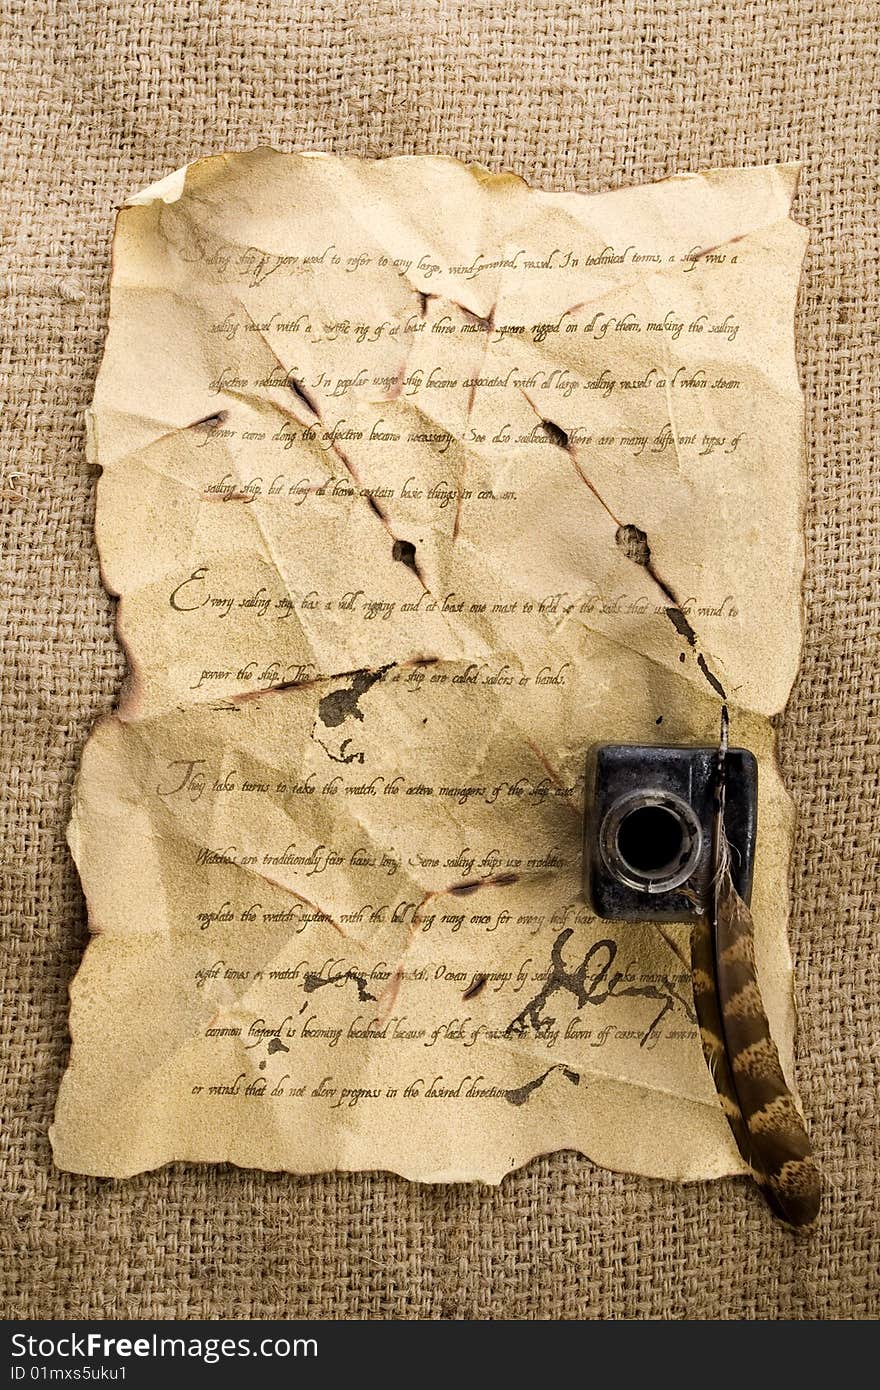 Sailing ship is now used to refer to any large, wind-powered, vessel. In technical terms, a ship was a
sailing vessel with a specific rig of at least three masts, square rigged on all of them, making the sailing
adjective redundant. In popular usage ship became associated with all large sailing vessels and when steam
power came along the adjective became necessary. See also sailboat. There are many different types of
sailing ship, but they all have certain basic things in
Every sailing ship has a hull, rigging and at least one mast to hold up the sails that use the wind to
power the ship. The a ship are called sailors or hands.
They take turns to take the watch, the active managers of the ship and
Watches are traditionally four hours long. Some sailing ships use
regulate the watch system, with the bell being rung once for every half hour
eight times a watch end Ocean journeys by can take many
common hazard is becoming becalmed because of lack of or being blown off course by severe
or winds that do not allow progress in the desired direction
StockFreeImages
ID 01mxs5uku1